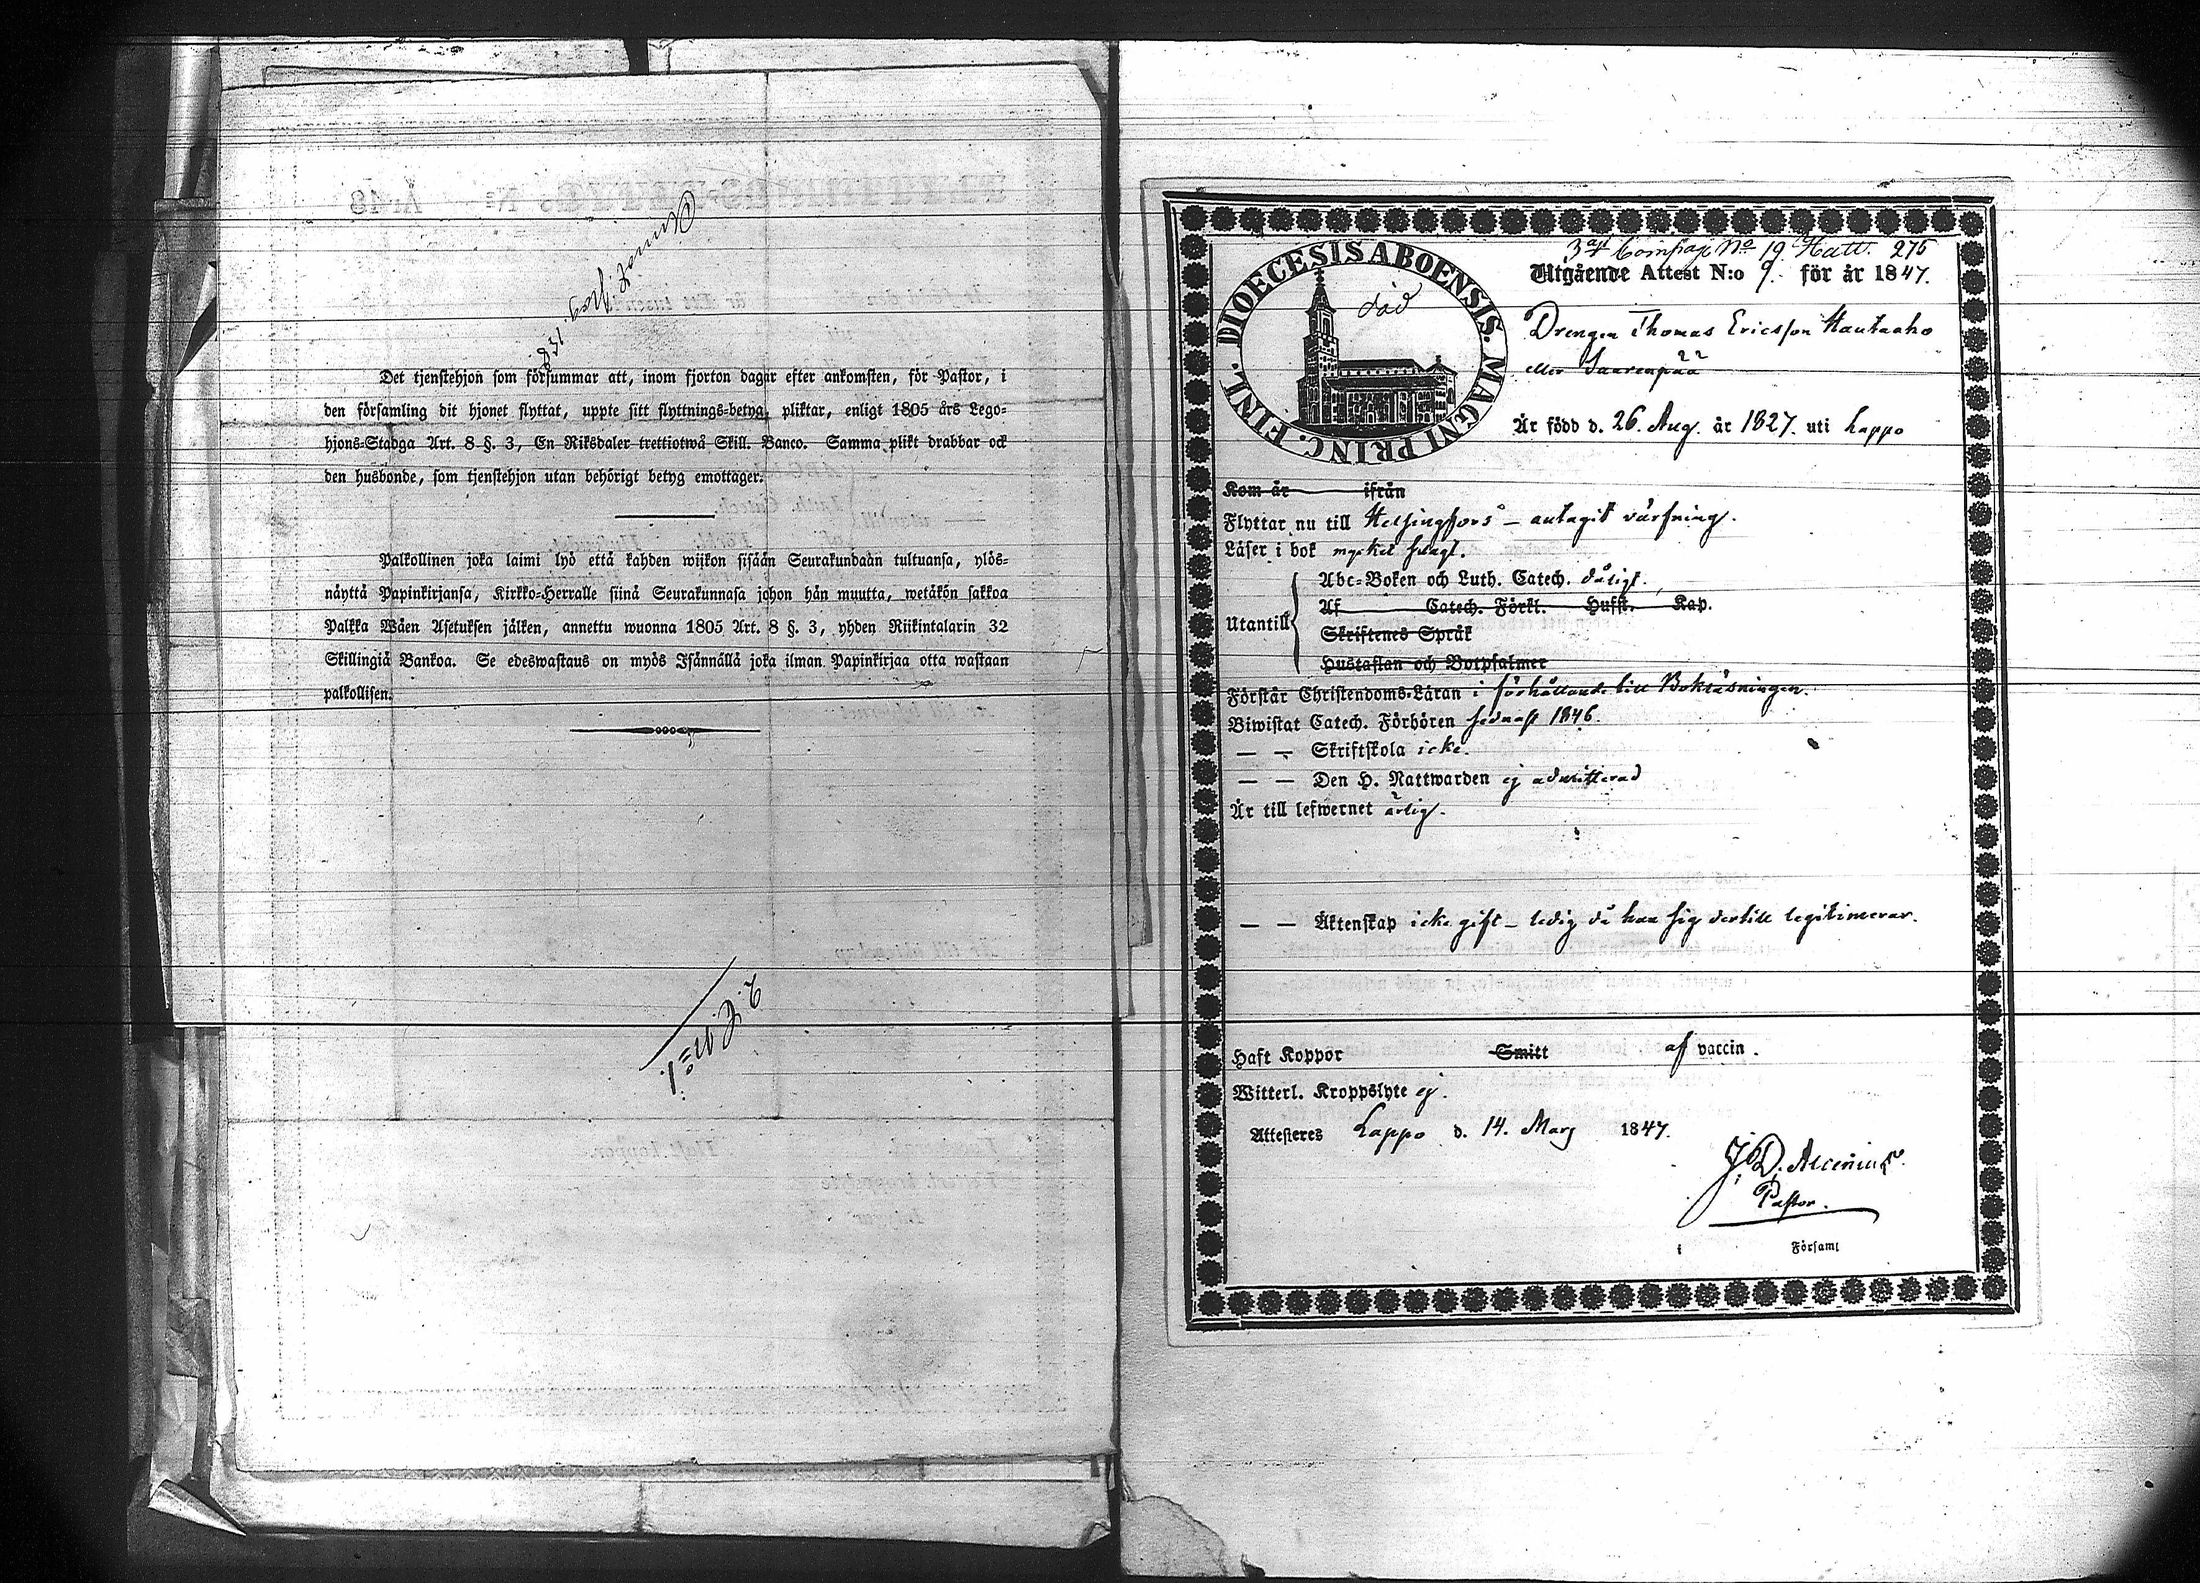 Det tjenstehjon som försummar att, inom fjorton dagar efter ankomsten, för Pastor, i
den församling dit hjonet flyttat, uppte sitt flyttnings-betyg, pliktar, enligt 1805 års Lego-
hjons-Stadga Art. 8 §. 3, En Riksdaler trettiotwå Skill. Banco. Samma plikt drabbar ock
den husbonde, som tjenstehjon utan behörigt betyg emottager.
Palkollinen joka laimi lyö että kahden wijkon sisään Seurakundaan tultuansa, ylös-
näyttä Papinkirjansa, Kirkko-Herralle siinä Seurakunnasa johon hän muutta, wetäkön sakkoa
Palkka Wäen Asetuksen jälken, annettu wuonna 1805 Art. 8 §. 3, yhden Riikintalarin 32
Skillingiä Bankoa. Se edeswastaus on myös Isännällä joka ilman Papinkirjaa otta wastaan
palkollisen.
No 19 275
Utgående Attest N:o 9. för år 1847.
DIOECESIS ABOENSIS. MAGNI PRINC. FINL.
död
Drengen Thomas Ericsson Hautaaho
eller Saarenpää
Är född d. 26. Aug. år 1827. uti Lappo
Kom år ifrån
Flyttar nu till Helsingfors – antagit värfning.
Läser i bok mycket svagt.
Abc-Boken och Luth. Catech. dåligt.
Af Catech. Förkl. Hufst. Kap.
Utantill
Skriftenes Språk
Hustaflan och Botpsalmer
Förstår Christendoms-Läran i förhållande till Bokläsningen.
Biwistat Catech. Förhören sednast 1846.
— — Skriftskola icke.
— — Den H. Nattwarden ej admitterad
Är till lefwernet ärlig.
— — Äktenskap icke gift – ledig då han sig dertill legitimerar.
Haft Koppor Smitt af vaccin.
Witterl. Kroppslyte ej.
Attesteres Lappo d. 14. Mars 1847.
J. D. Alcenius
Pastor.
i Församl